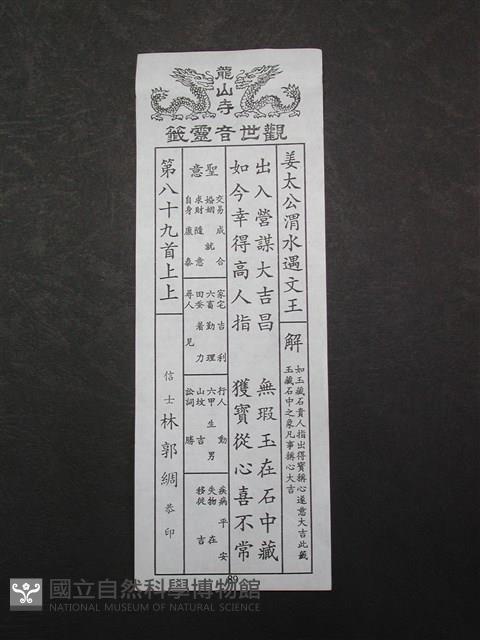 龍山寺
觀世音靈籤
姜太公渭水遇文王
解
如玉藏石貴人指出得寶稱心遂意大吉此籤
玉藏石中之象凡事稱心大吉
出入營謀大吉昌　無瑕玉在石中藏
如今幸得高人指　獲寶從心喜不常
聖意
交易　成合
婚姻　就
求財　隨意
自身　康泰
家宅　吉利
六畜　勤理
田蚕　著力
尋人　見
行人　動
六甲　生男
山坟　吉
訟詞　勝
疾病　平安
失物　在
移徙　吉
第八十九首上上
信士　林郭綢　恭印
89
國立自然科學博物館
NATIONAL MUSEUM OF NATURAL SCIENCE